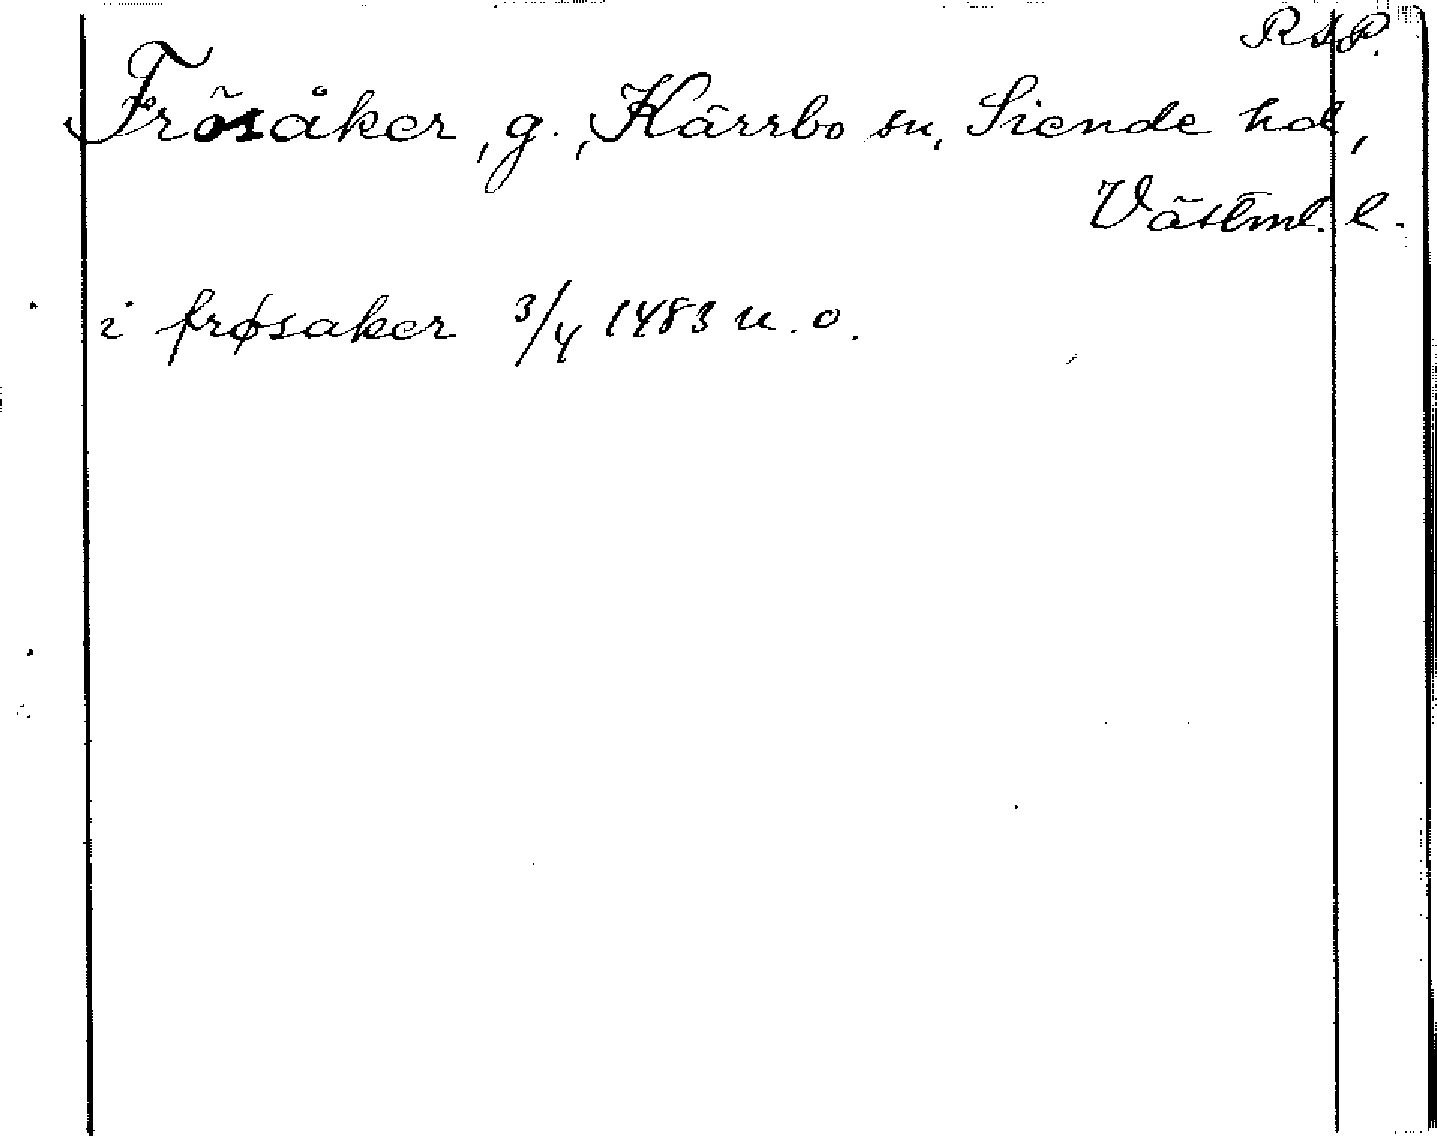 RAP.
Frösåker, g., Kärrbo sn, Siende hd,
Västml. l.
i frøsaker 3/4 1483 u. o.